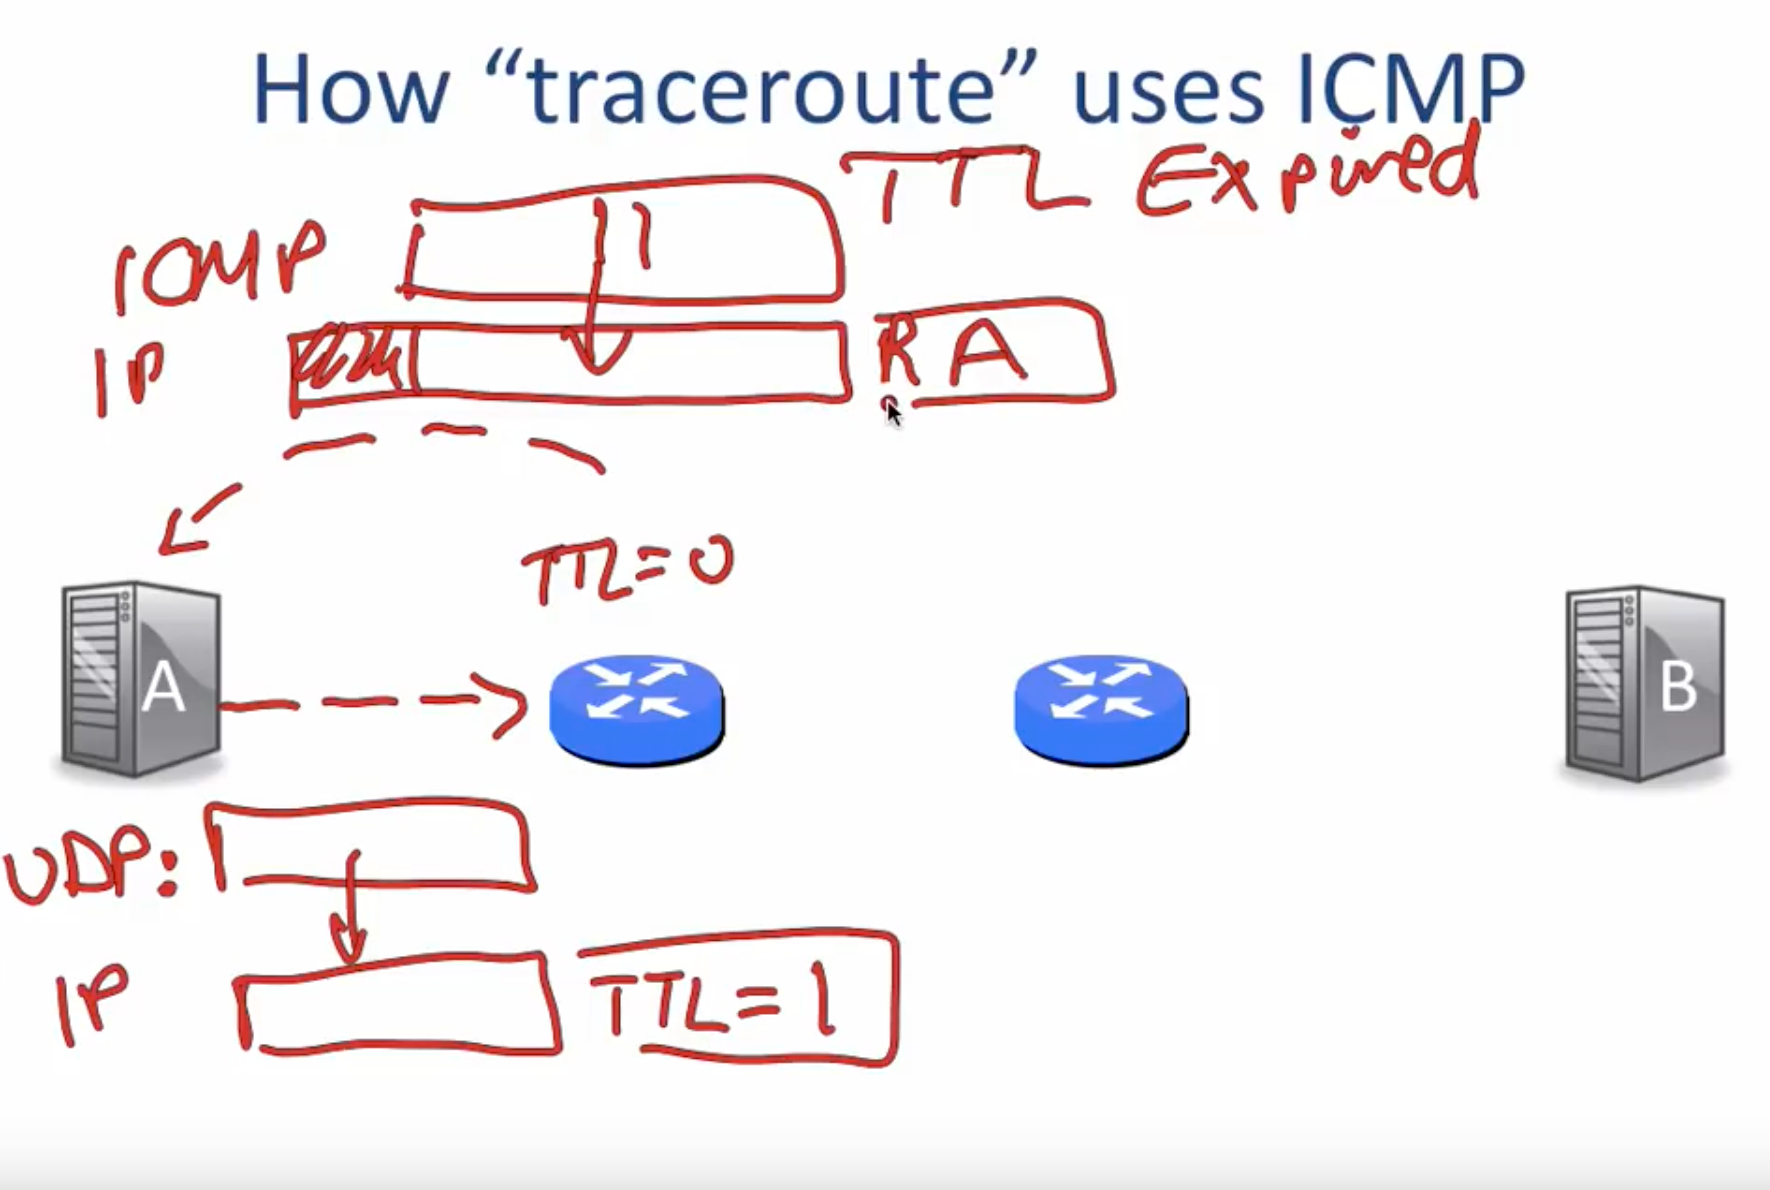 How “traceroute” uses ICMP
TTL Expired
ICMP 11
IP R A
TTL=0
A
B
UDP:
IP TTL=1